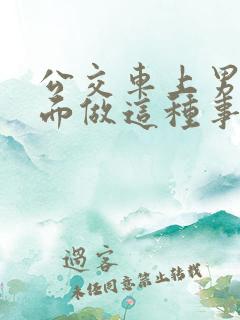 公交車上男
而做這種事
過客
未经同意禁止转载